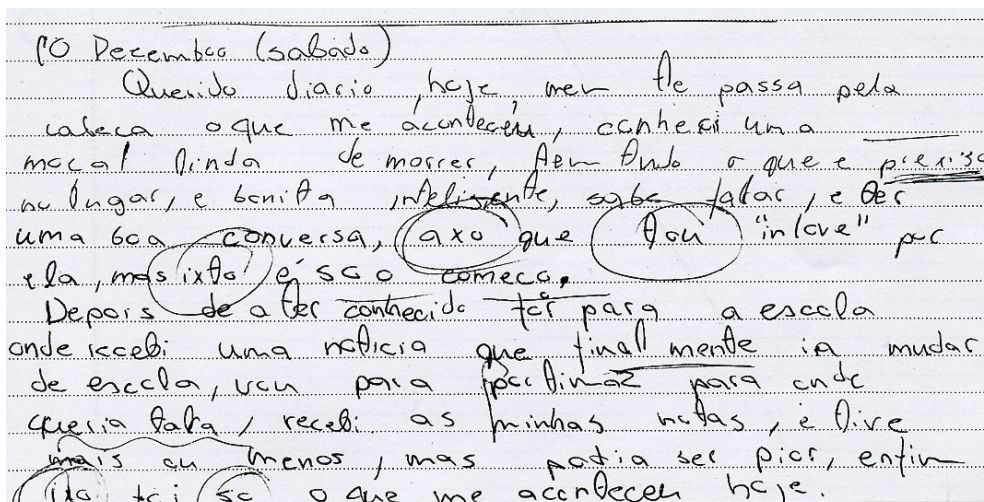 10 Decembro (sabado)
Querido diario, hoje, nem te passa pela
cabeca o que me aconteceu, conheci uma
moca! linda de morrer, tem tudo o que e preciso
no lugar, e bonita inteligente, sabe falar, e ter
uma boa conversa, axo que tou "inlove" por
ela, mas ixto é so o comeco.
Depois de a ter conhecido foi para a escola
onde recebi uma noticia que finalmente ia mudar
de escola, vou para para onde
queria tata, recebi as minhas notas, e tive
mais ou menos, mas podia ser pior, enfim
foi so o que me aconteceu hoje.